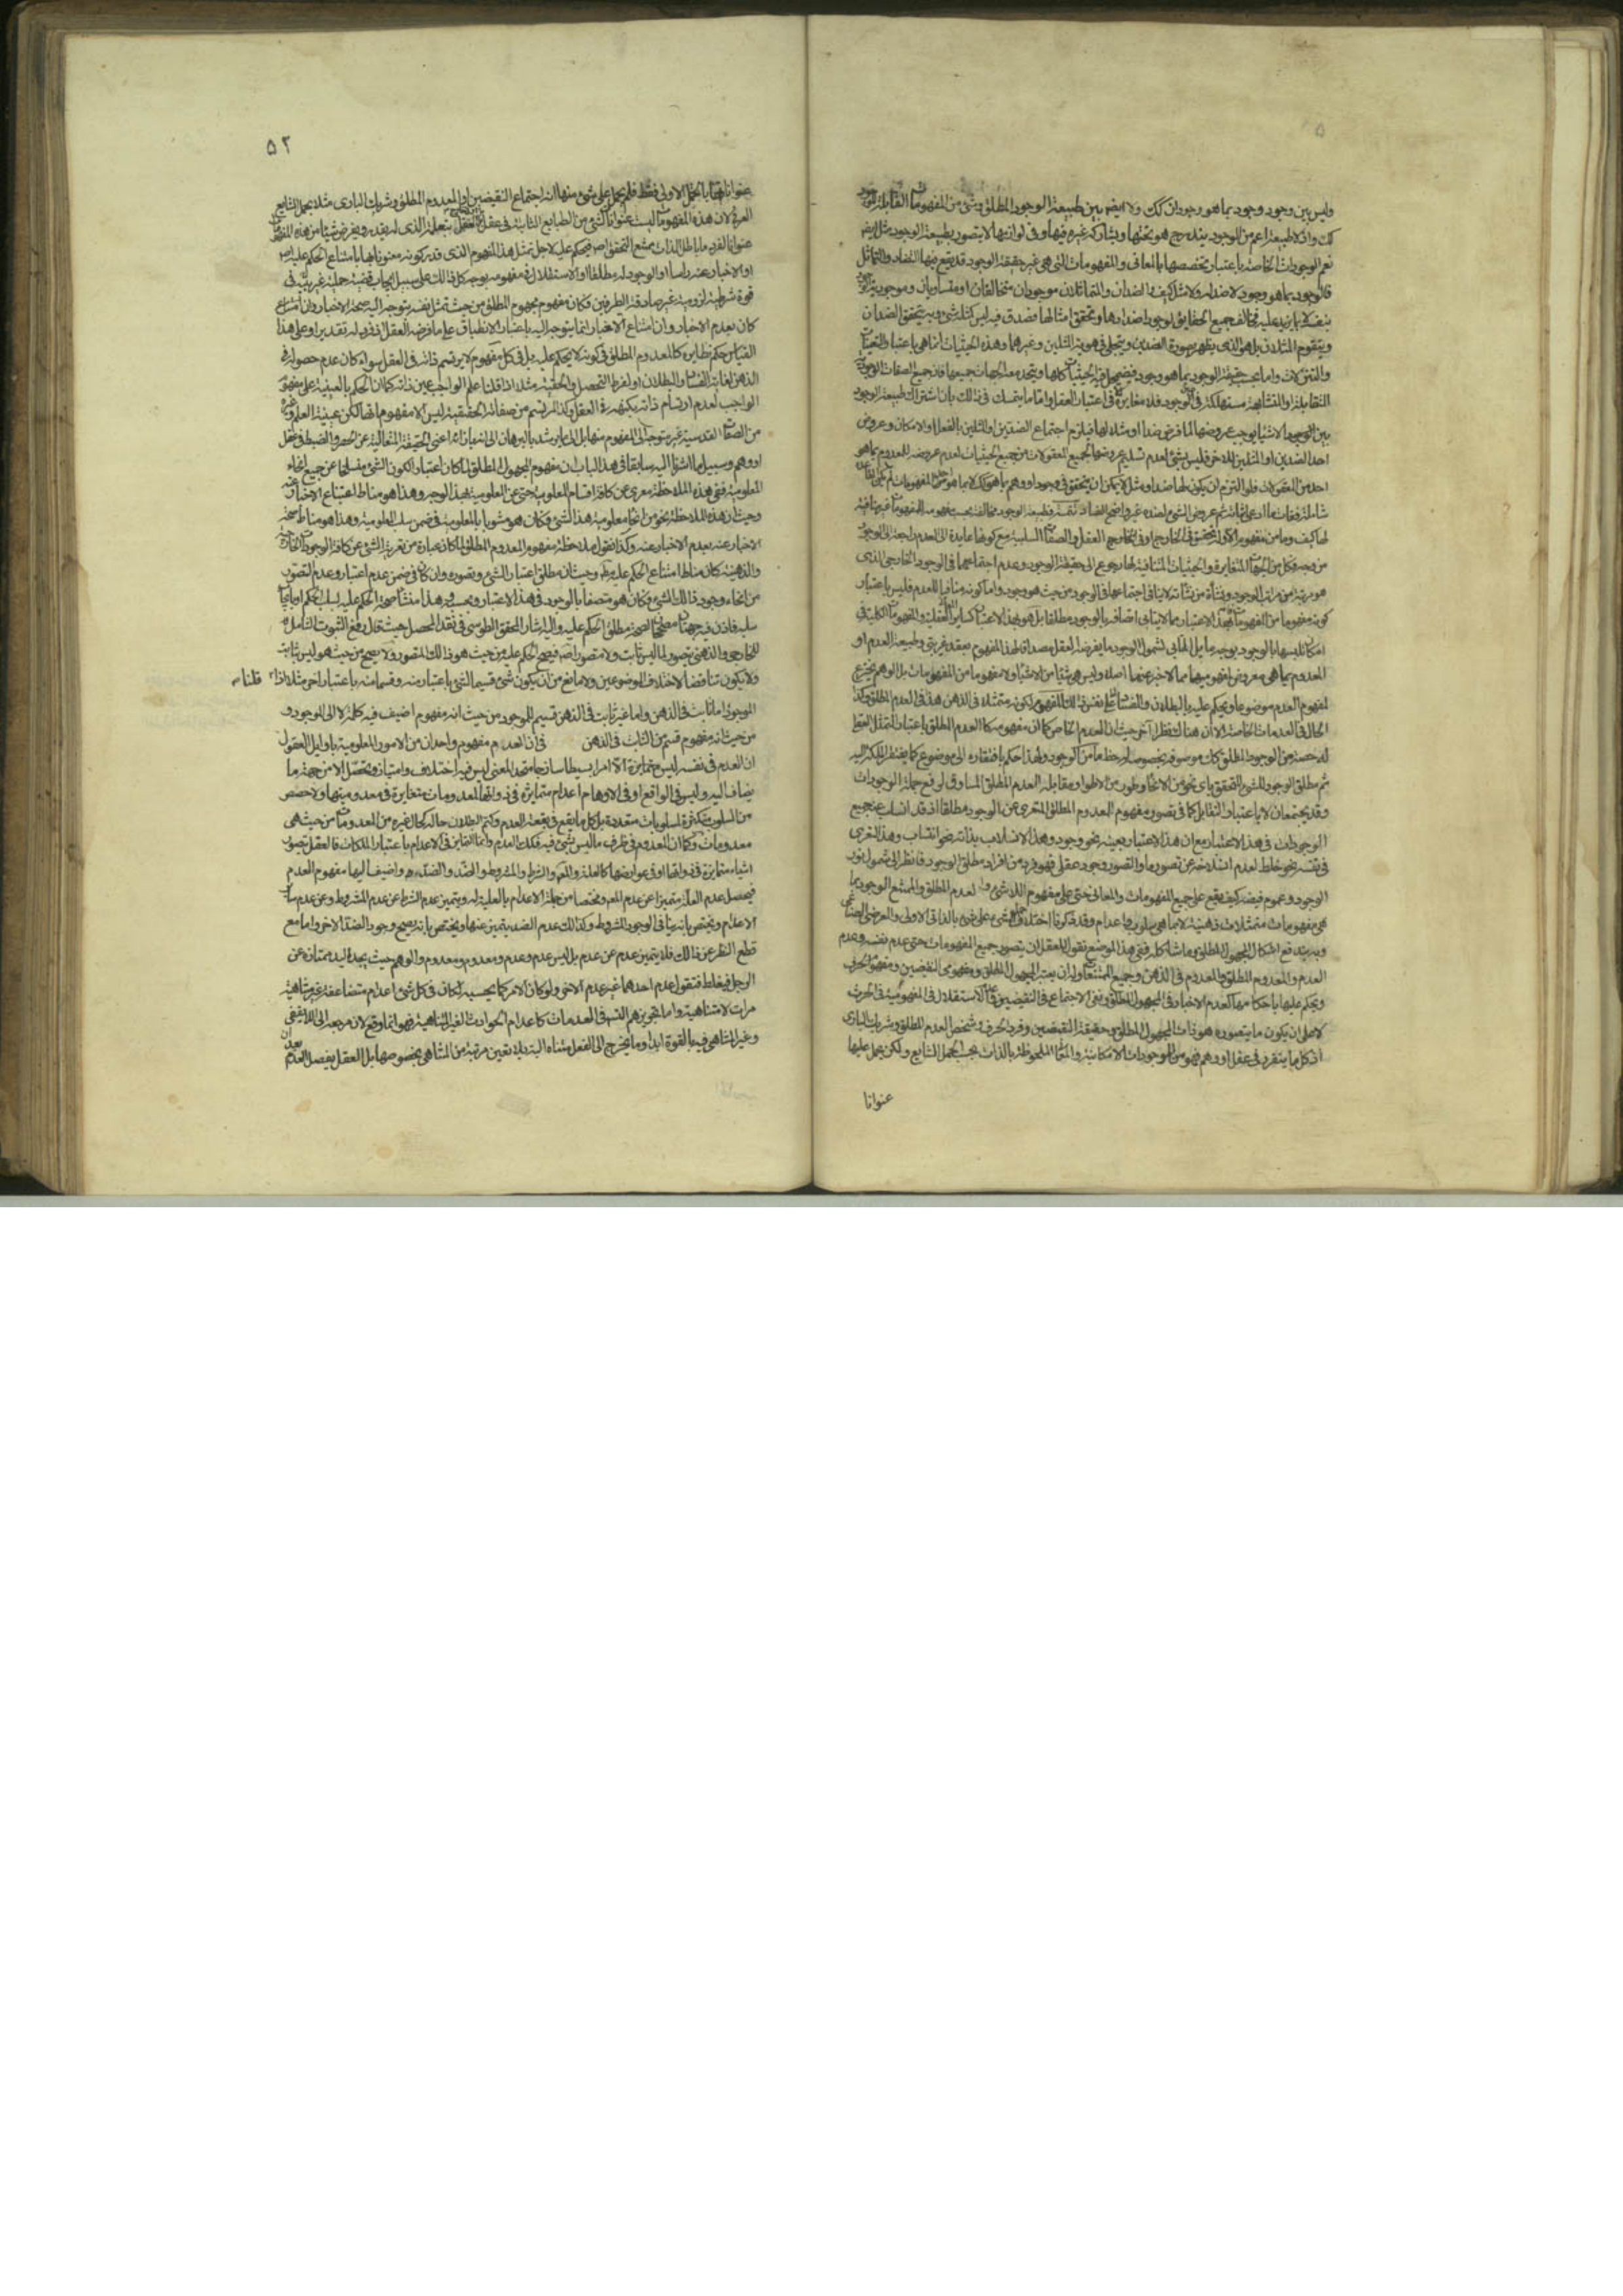 وليس بين وجود وجود بما هو وجودان كك ولا ايضا بين طبيعة الوجود المطلق وشئ من المفهومات القابلة للوجود
كك واذ لا طبيعة اعم من الوجود يندرج هو تحتها ويشاركه غيره فيها وفى لوازمها لا يتصور لطبيعة الوجود مثل ايضا
نعم الوجودات الخاصة باعتبار تخصصها بالمعانى والمفهومات التى هى غير حقيقة الوجود قد يقع فيها التضاد والتماثل
فالوجود بما هو وجود لا ضد له ولا مثل له كيف والضدان والمتماثلان موجودان متخالفان او متساويان وموجودية الوجود
بنفسه لا بما يزيد عليه فخالف جميع الحقايق لوجود اضدادها وتحقق امثالها فصدق فيه ليس كمثله شئ وبه يتحقق الضدان
ويتقوم المثلان بل هو الذى يظهر بصورة الضدين ويتجلى فى هوية المثلين وغيرهما وهذه الحيثيات انما هى باعتبار التعينات
والتنزلات واما بحسب حقيقة الوجود بما هو وجود فيضمحل فيه الحيثيات كلها ويتحد معه الجهات جميعها فان جميع الصفات الوجودية
المتقابلة او المتشابهة مستهلكة فى الوجود فلا مغايرة الا فى اعتبار العقل واما ما يتمسك فى ذلك بان اشتراك طبيعة الوجود
بين الاشياء يوجب عروضها لما فرض ضدا او مثلا لها فيلزم اجتماع الضدين او المثلين بالفعل او الامكان وعروض
احد الضدين او المثلين للاخر فليس بشئ لعدم تسليم عروضها لجميع المعقولات من جميع الحيثيات لعدم عروضه للمعدوم بما هو
احد من المعقولات فلو التزم ان يكون لها ضد او مثل لا يمكن ان يتحقق فى وجود او وهم بما هو كك لا بما هو احد من المفهومات
شاملة فقات ما ادعى لغاية ثم عروض الشئ لضده غير واضح الفساد تتمة فطبيعة الوجود مخالفة بحسب مفهومه للمفهومات غير منافية
لها كيف وما من مفهوم الا وله تحقق فى الخارج او فى العقل والصفات السلبية مع كونها عايدة الى العدم راجعة الى الوجود
من وجه فكل من الجهات المتغايرة والحيثيات المتنافية لها رجوع الى حقيقة الوجود وعدم اجتماعهما فى الوجود الخارجى الذى
هو مرتبة من مراتب الوجود ونشأة من نشآته لا ينافى اجتماعها فى الوجود من حيث هو وجود واما كونه منافيا للعدم فليس باعتبار
كونه مفهوما من المفهومات اذ بهذا الاعتبار مما لا يتابى اتصافه بالوجود مطلقا بل هو بهذا الاعتبار كساير المعانى العقلية والمفهومات الكلية فى
امكان تلبسها بالوجود بوجه ما بل المتابى لشمول الوجود ما يفرضه العقل مصداقا لهذا المفهوم بعقد غير بتى وطبيعة العدم او
المعدوم بما هى معروض لمفهوميهما مما لا خبر عنهما اصلا وليس هى شيئا من الاشياء ولا مفهوما من المفهومات بل الوهم يخترع
لمفهوم العدم موضوعا ويحكم عليه بالبطلان والفساد على نفس ذلك المفهوم لكونه متمثلا فى الذهن هذا فى العدم المطلق وكذا
الحال فى العدمات الخاصة الا ان هناك نظرا آخر حيث ان العدم الخاص كما ان مفهومه كالعدم المطلق باعتبار التمثل العقلى
له حصة من الوجود المطلق كان موسوفه بخصوصه له حظ ما من الوجود ولهذا حكم بافتقاره الى موضوع كما يفتقر الملكة اليه
ثم مطلق الوجود للشئ المتحقق باى نحو من الانحاء وطور من الاطوار مقابله العدم المطلق المساوق لرفع جملة الوجودات
وقد يجتمعان لا باعتبار التقابل كما فى تصور مفهوم المعدوم المطلق المتعرى عن الوجود مطلقا اذ قد انسلب عنه جميع
الوجودات فى هذا الاعتبار مع ان هذا الاعتبار بعينه نحو وجود وهذا الانسلاب بذاته نحو انتساب وهذا التعرى
فى نفسه نحو خلط لعدم انسلاخه عن تصور ما والتصور وجود عقلى فهو فرد من افراد مطلق الوجود فانظر الى شمول نور
الوجود وعموم فيضه كيف يقع على جميع المفهومات والمعانى حتى على مفهوم اللاشئ والعدم المطلق والممتنع الوجود بما
هى مفهومات متمثلات ذهنية لا بما هى سلوب واعدام وقد ذكرنا اختلاف حمل شئ على شئ بالذاتى الاولى والعرضى الصناعى
وبه يندفع اشكال المجهول المطلق وما شاكله ففى هذا الموضع نقول للعقل ان يتصور جميع المفهومات حتى عدم نفسه وعدم
العدم والمعدوم المطلق والمعدوم فى الذهن وجميع الممتنعات وله ان يعتبر المجهول المطلق ومفهومى النقيضين ومفهوم الحرف
ويحكم عليها باحكامها كعدم الاخبار فى المجهول المطلق ونفى الاجتماع فى النقيضين وعدم الاستقلال فى المفهومية فى الحرف
لا على ان يكون ما يتصوره هو ذات المجهول المطلق وحقيقة النقيضين وفرد الحرف وشخص العدم المطلق وشريك البارى
اذ كل ما يتقرر فى عقل او وهم فهو من الموجودات الامكانية والمعانى الملحوظة بالذات بحسب الحمل الشايع ولكن يحمل عليها
عنوانا
٥٢
عنواناتها بالحمل الاولى فقط فلم يحمل على شئ منها انه اجتماع النقيضين او المعدوم المطلق وشريك البارى مثلا بحمل الشايع
العرضى لان هذه المفهومات ليست عنوانا لشئ من الطبايع الثابتة فى عقل بل العقل بتعمله الذى له يقدر ويفرض شيئا من هذه المفهومات
عنوانا لفرد ما باطل الذات ممتنع التحقق اصلا فيحكم عليه لاجل تمثل هذا المفهوم الذى قدر كونه معنونا بها بامتناع الحكم عليه اصلا
او الاخبار عنه راسا او الوجود له مطلقا او الاستقلال فى مفهومه بوجه كل ذلك على سبيل ايجاب قضية حملية غير بتية فى
قوة شرطية لزومية غير صادقة الطرفين فكان مفهوم مجهوم المطلق من حيث تمثل نفسه يتوجه اليه صحة الاخبار وان
كان بعدم الاخبار وان امتناع الاخبار انما يتوجه اليه باعتبار الانطباق على ما فرضه العقل انه فرد له تقديرا وعلى هذا
القياس حكم نظايره كالمعدوم المطلق فى كونه لا يحكم عليه بل فى كل مفهوم لا يرتسم ذاته فى العقل سواء كان عدم حصوله فى
الذهن لغاية الفساد والبطلان او لفرط التحصل والحقية مثلا اذا قلنا علم الواجب عين ذاته كما ان الحكم بالعينية على مفهوم
الواجب لعدم ارتسام ذاته بكنهه فى العقل وكذا المرتسم من صفاته الحقيقية ليس الا مفهوماتها لكن عينية العلم وغيره
من الصفات القدسية غير متوجه الى المفهوم منها بل الى ما يرشد بالبرهان الى انه بازائه اعنى الحقيقة المتعالية عن الحصر والضبط فى عقل
او وهم وسبيل ما اشرنا اليه سابقا فى هذا الباب ان مفهوم المجهول المطلق لما كان اعتبار الكون الشئ منسلخا عن جميع انحاء
المعلومية ففى هذه الملاحظة معرى عن كافة اقسام المعلومية حتى عن المعلومية بهذا الوجه وهذا هو مناط امتناع الاخبار عنه
وحيث ان هذه الملاحظة نحو من انحاء معلومية هذا الشئ فكان هو مشوبا بالمعلومية فى ضمن سلب المعلومية وهذا هو مناط صحة
الاخبار عنه بعدم الاخبار عنه وكذا نقول ملاحظة مفهوم المعدوم المطلق لما كان عبارة عن تعرية الشئ عن كافة الوجودات الخارجية
والذهنية كان مناط امتناع الحكم عليه وحيث ان مطلق اعتبار الشئ وتصوره وان كان فى ضمن عدم اعتباره وعدم تصوره
من انحاء وجود ذلك الشئ فكان هو متصفا بالوجود فى هذا الاعتبار وبحسبه وهذا منشأ صحة الحكم عليه بسلب الحكم او بايجاب
سلبه فاذن فيه جهتان مصححتان لصحة مطلق الحكم عليه واليه اشار المحقق الطوسى فى نقد المحصل حيث قال رفع الثبوت الشامل
للخارجى والذهنى تصور لما ليس بثابت ولا متصور اصلا فيصح الحكم عليه من حيث هو ذلك المتصور ولا يصح من حيث هو ليس بثابت
ولا يكون تناقضا لاختلاف الموضوعين ولا مانع من ان يكون شئ قسيم الشئ باعتبار وقسما منه باعتبار اخر مثلا اذا قلنا
الموجود اما ثابت فى الذهن واما غير ثابت فى الذهن قسيم للموجود من حيث انه مفهوم اضيف فيه كلمة لا الى الموجود و
من حيث انه مفهوم قسم من الثابت فى الذهن فى ان العدم مفهوم واحد ان من الامور المعلومية باوايل العقول
ان العدم فى نفسه ليس متمايزة الا امرا بسيطا ساذجا متحد المعنى ليس فيه اختلاف وامتياز وتحصل الا من جهة ما
يضاف اليه وليس فى الواقع او فى الاوهام اعدام متمايزة فى ذواتها او معدومات متغايرة فى معدوميتها ولا حصص
من السلوب متكثرة لمسلوبات متعددة بل كل ما يقع فى بقعة العدم وكتم البطلان حاله كحال غيره من المعدومات من حيث هى
معدومات وكما ان المعدوم فى ظرف ما ليس بشئ فيه فكذلك العدم وانما التمايز فى الاعدام باعتبار الملكات فالعقل يتصور
اشياء متمايزة فى ذواتها او فى عوارضها كالعلة والمعلول والشرط والمشروط والضد والضد ويضيف اليها مفهوم العدم
فيحصل عدم العلة متميزا عن عدم المعلول ومختصا من جملة الاعدام بالعلية له ويتميز عدم الشرط عن عدم المشروط وعن عدم ساير
الاعدام ويختص بانه ينافى الوجود المشروط وكذلك عدم الضد يتميز عنها ويختص بانه يصحح وجود الضد الاخر واما مع
قطع النظر عن ذلك فلا يتميز عدم عن عدم بل ليس عدم وعدم ومعدوم ومعدوم والوهم حيث يجد اليد ممتازة عن
الرجل فيغلط فتقول عدم احدهما غير عدم الاخر ولو كان الامر كما يحسبه لكان فى كل شئ اعدام متضاعفة غير متناهية
مرات لا متناهية واما تجويزهم التس فى العدمات كاعدام الحوادث الغير المتناهية فهو انما وقع لان مرجعه الى اللايقفى
وغير المتناهى فيه بالقوة ابدا وما يخرج الى الفعل متناه البتة بلا تعين مرتبة من التناهى بخصوصها بل العقل يفصل العدم